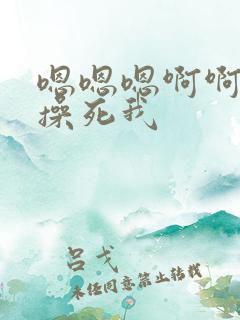 嗯嗯嗯啊啊
操死我
吕戈
未经同意禁止转载